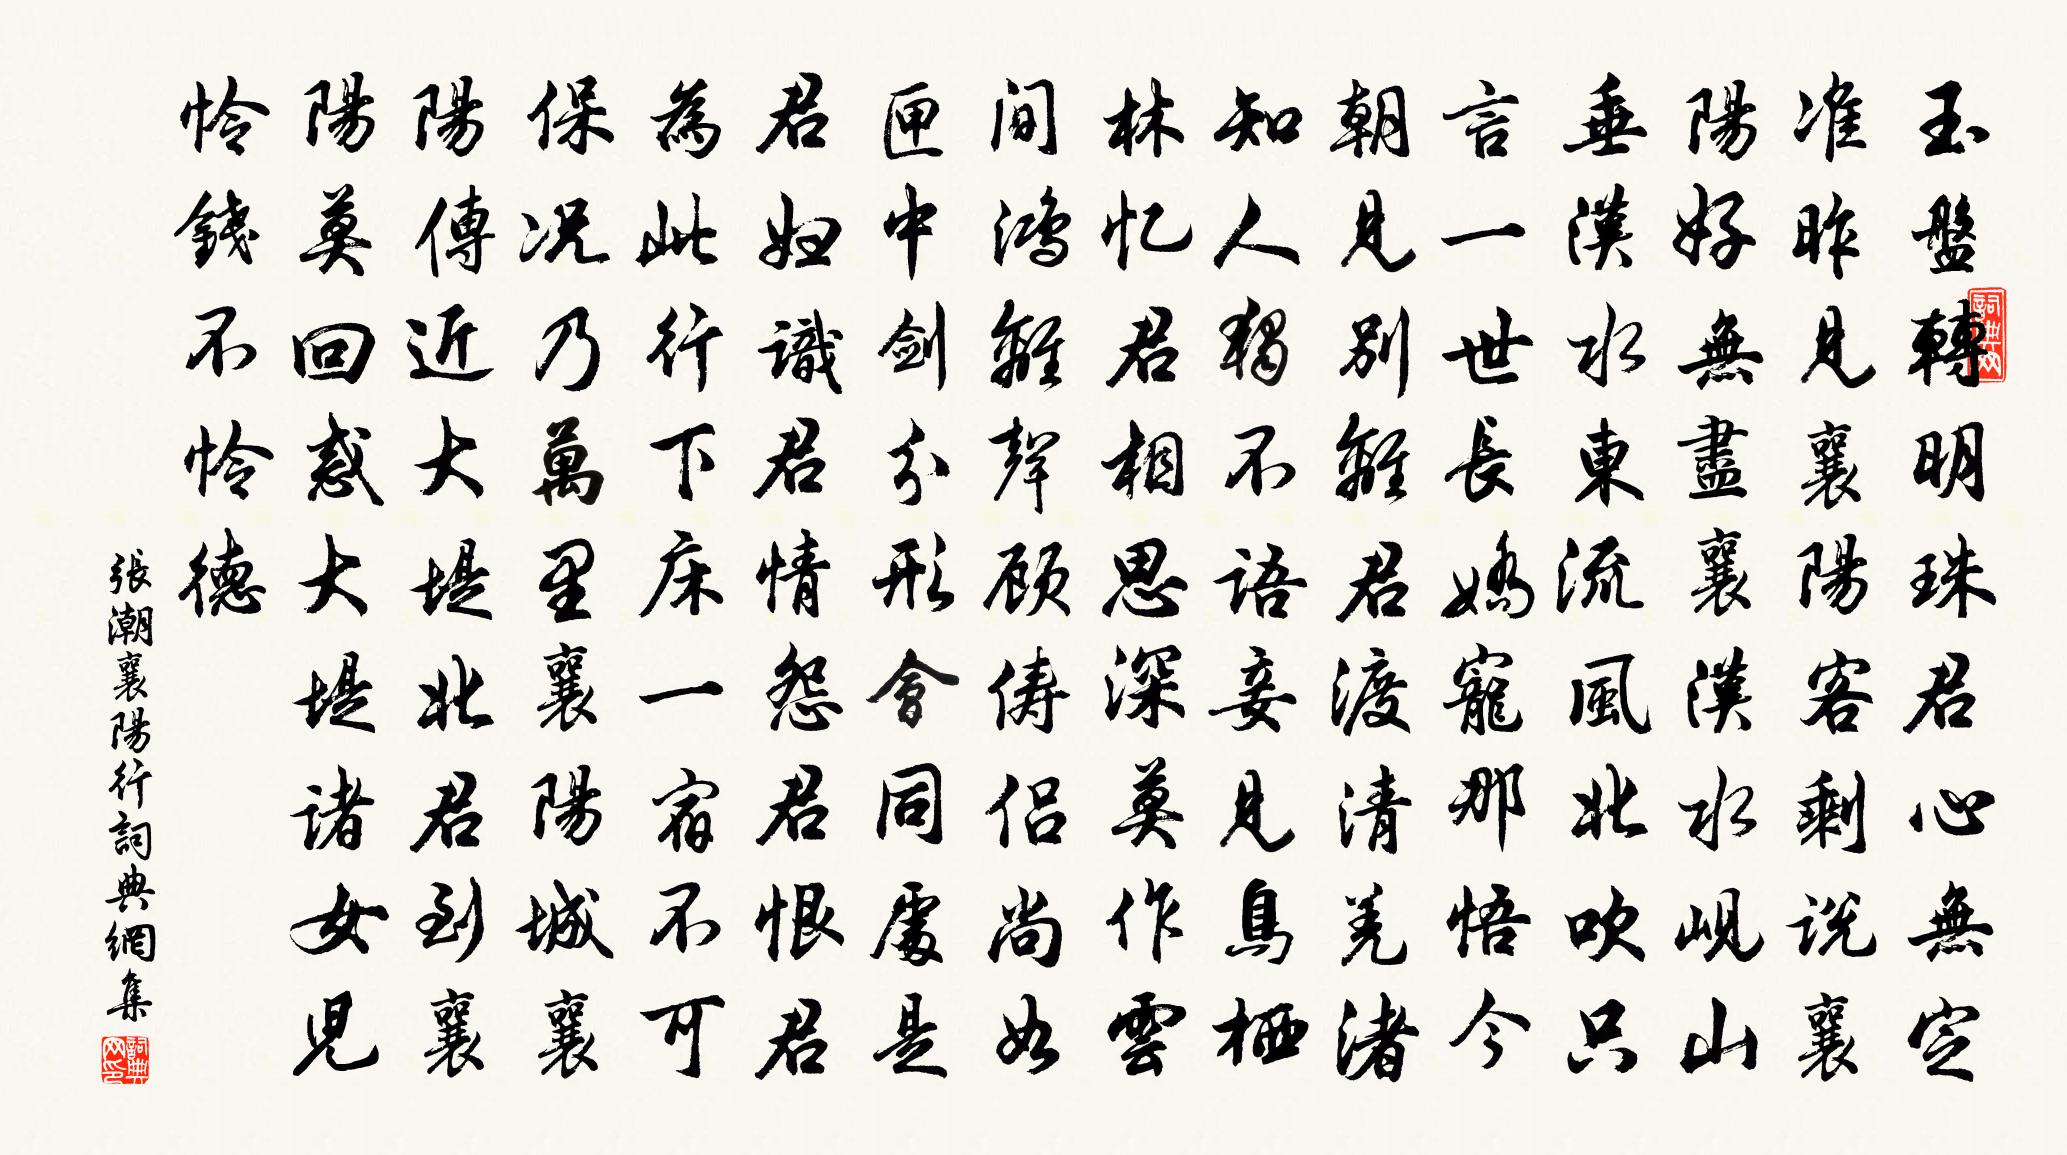 玉盤轉明珠君心無定
准昨見襄陽客剩説襄
陽好無盡襄漢水峴山
垂漢水東流風北吹只
言一世長嬌寵那悟今
朝見別離君渡清羌渚
知人獨不語妾見鳥栖
林忆君相思深莫作雲
间鴻離聲顾俦侣尚如
匣中剑分形會同處是
君妇識君情怨君恨君
為此行下床一宿不可
保况乃萬里襄陽城襄
陽傳近大堤北君到襄
陽莫回惑大堤諸女兒
怜錢不怜德
張潮襄陽行詞典網集
詞典网
詞典网印